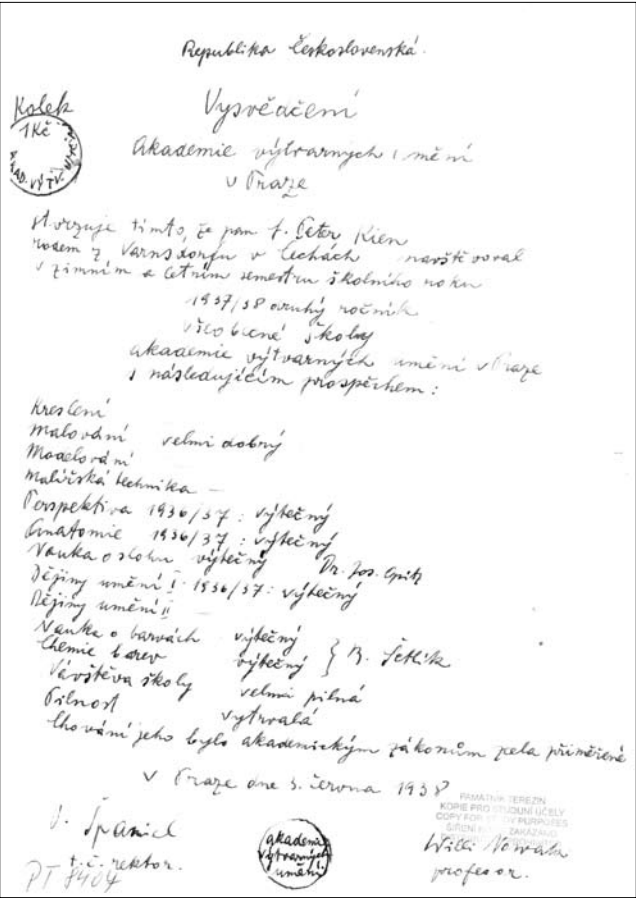 Republika Československá.
Kolek
1 Kč
AKAD. VÝTV.
Vysvědčení
Akademie výtvarných umění
v Praze
stvrzuje tímto, že pan f. Peter Kien
rodem z Varnsdorfu v Čechách navštěvoval
v zimním a letním semestru školního roku
1937/38 druhý ročník
všeobecné školy
akademie výtvarných umění v Praze
s následujícím prospěchem:
Kreslení
Malování velmi dobrý
Modelování
Malířská technika —
Perspektiva 1936/37: výtečný
Anatomie 1936/37: výtečný
Nauka o slohu výtečný Dr. Jos. Opitz
Dějiny umění I. 1936/37: výtečný
Dějiny umění II
Nauka o barvách výtečný
Chemie barev výtečný } B. Šetlík
Návštěva školy velmi pilná
Pilnost vytrvalá
Chování jeho bylo akademickým zákonům zcela přiměřené
V Praze dne 3. června 1938
PAMÁTNÍK TEREZÍN
KOPIE PRO STUDIJNÍ ÚČELY
COPY FOR STUDY PURPOSES
ŠÍŘENÍ ZAKÁZÁNO
Španiel
t. č. rektor.
PT 8404
akademie
výtvarných
umění
Willi Nowak
profesor.